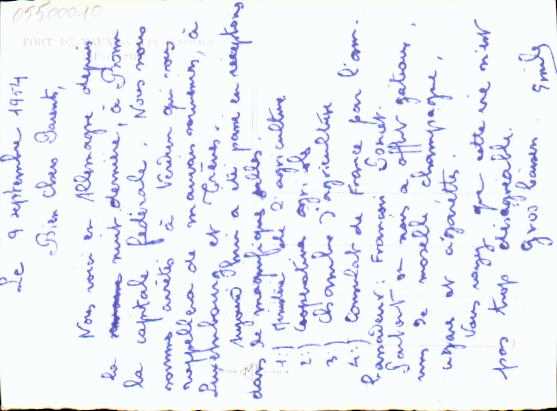 05500010
FORT DE VAUX
Le 9 septembre 1954
Bien chers Parents,
Nous voici en Allemagne depuis
la nuit dernière, à Bonn
la capitale fédérale. Nous nous
sommes arrêtés à Verdun qui vous
rappellera de mauvais souvenirs, à
Luxembourg et Trèves.
Aujourd'hui a été passé en réceptions
dans de magnifiques salles.
1:) Ministère de l'agriculture
2:) Coopérative agricole
3:) Chambre d'agriculture
4:) Consulat de France par l'am-
bassadeur: François Poncet.
Partout on nous a offert gâteaux,
vins de moselle, champagne,
cigares et cigarettes.
Vous voyez que cette vie n'est
pas trop désagréable.
Gros baisers. Emile